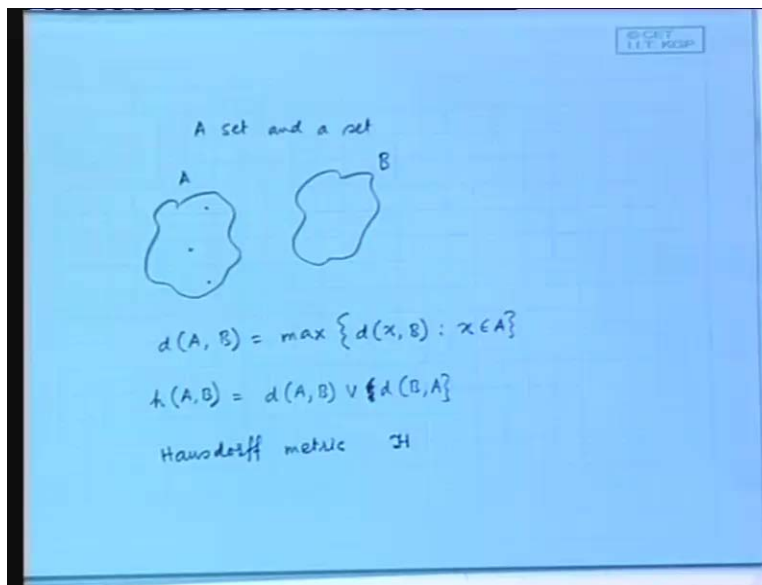 © CET
I.I.T. KGP
A set and a set
A
B
d(A, B) = max {d(x, B) : x ∈ A}
h(A,B) = d(A, B) ∨ {d(B,A}
Hausdorff metric ℋ